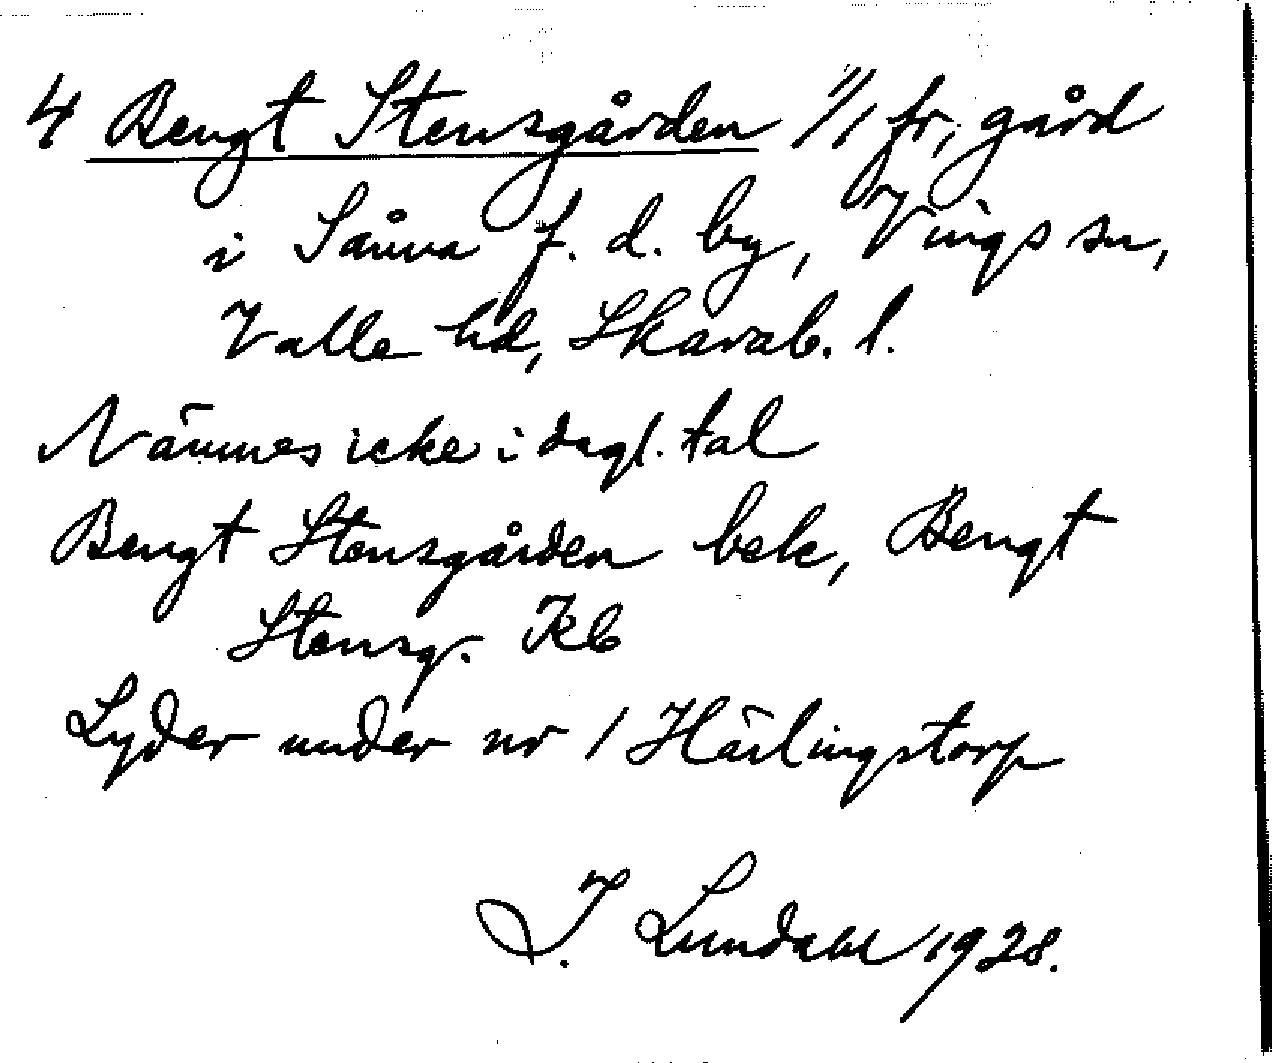 4 Bengt Stensgården 1/1 fr, gård
i Sånna f. d. by, Vings sn,
Valle hd, Skarab. l.
Nämnes icke i dagl. tal
Bengt Stensgården bek, Bengt
Stensg. Kb
Lyder under nr 1 Härlingstorp
I. Lundahl 1928.